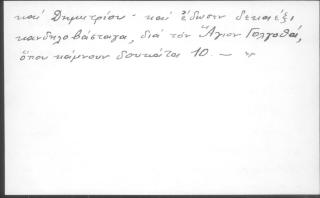 καί Δημητρίου - καί ἔδωσιν δεκαέξι
κανδηλοβάσταγα, διά τόν Ἅγιον Γολγοθᾶ,
ὅπου κάμνουν δουκάτα 10. —